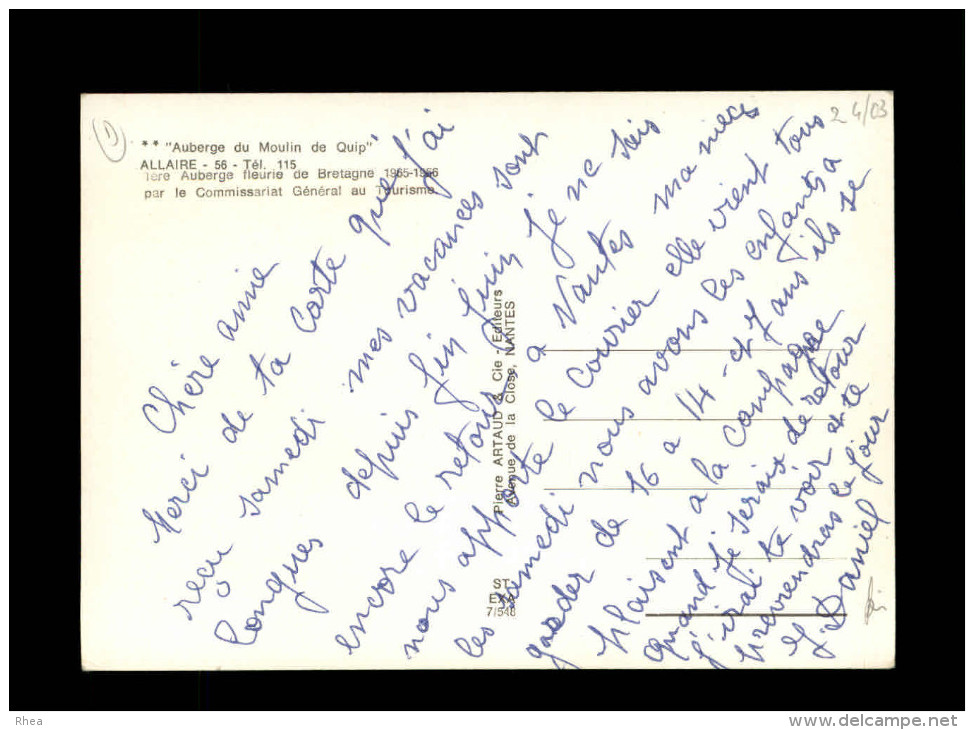 1
24/03
** "Auberge du Moulin de Quip"
ALLAIRE - 56 - Tél. 115
1ère Auberge fleurie de Bretagne 1965-1966
par le Commissariat Général au Tourisme.
Chère annie
Merci de ta carte que j'ai
reçu samedi mes vacances sont
longues depuis fin Juin je ne sais
encore le retour a Nantes ma nièce
nous apporte le courier elle vient tous
les samedi nous avons les enfants a
garder de 16 a 14 - et 7 ans ils se
plaisent a la campagne
quand je serais de retour
j'irai te voir et te
previendrais le jour
et Daniel
Pierre ARTAUD & Cie - Editeurs
Avenue de la Close, NANTES
ST-
EXA
7/548
Rhea
www.delcampe.net